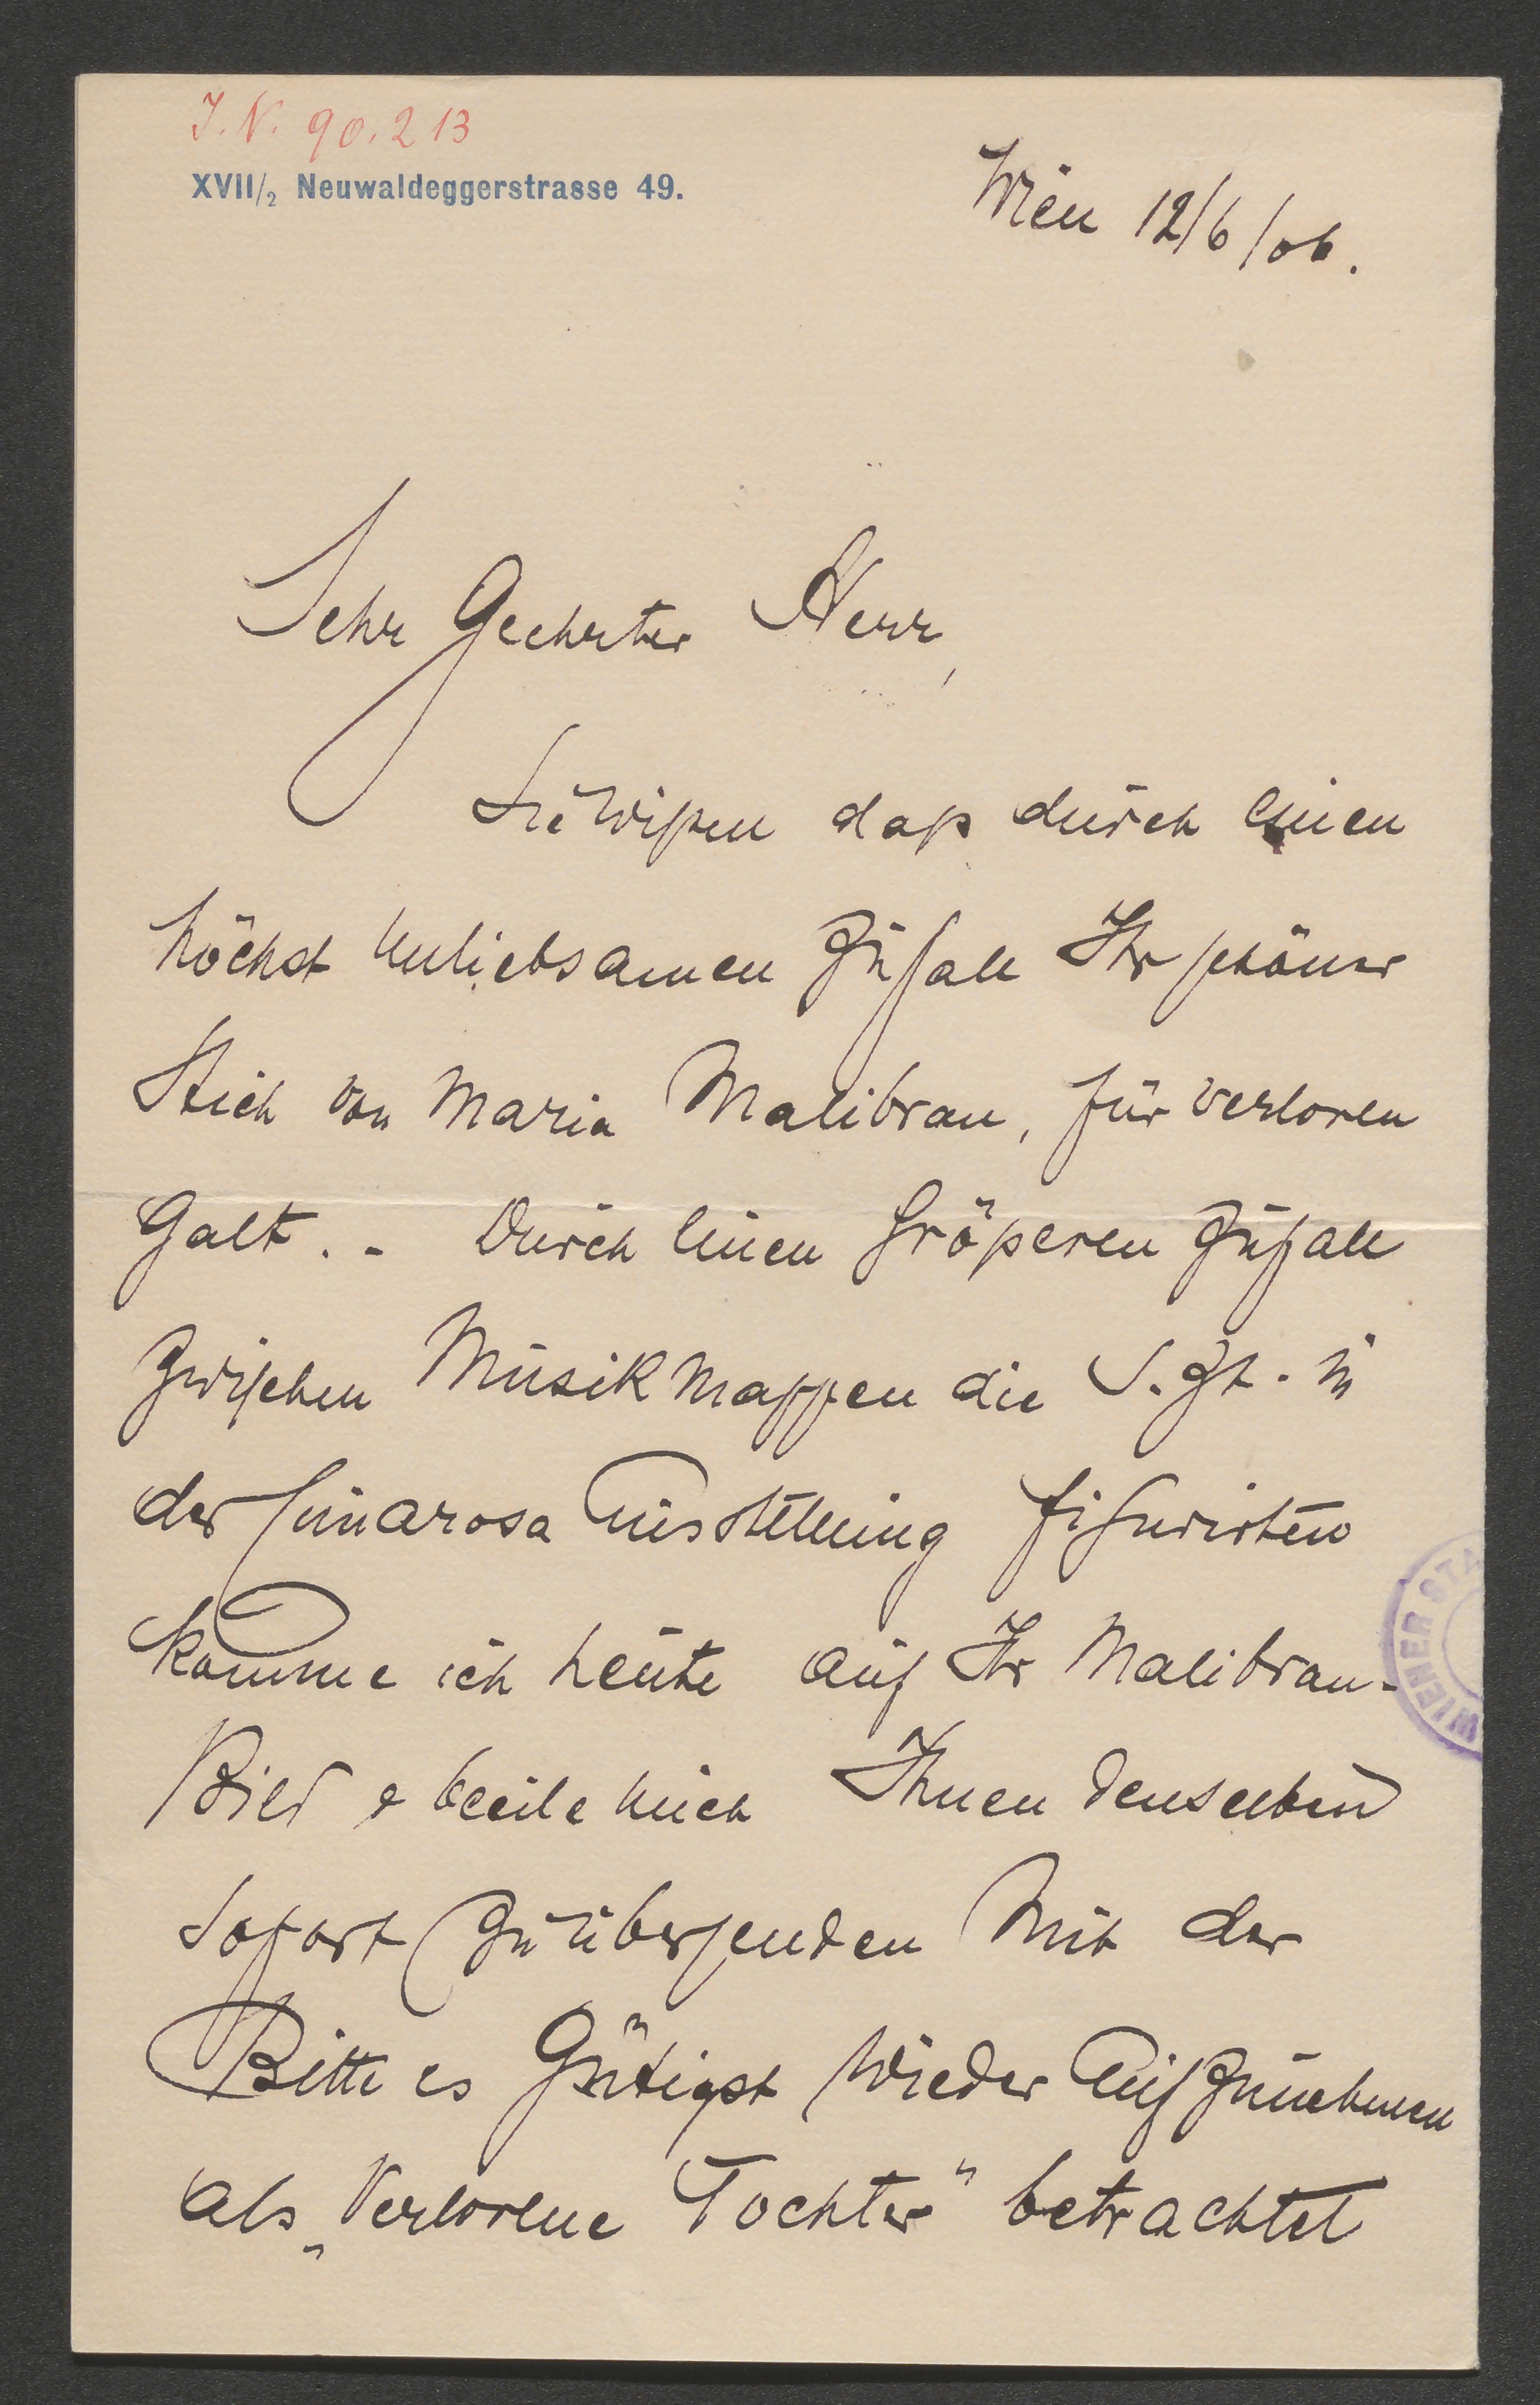 J.N. 90.213
XVII/2 Neuwaldeggerstrasse 49.
Wien 12/6/06.
Sehr Geehrter Herr,
Sie wißen daß durch einen
höchst unliebsamen Zufall Ihr schöner
Stich von Maria Malibran, für verloren
Galt. - Durch einen Größeren Zufall
zwischen Musik Mappen die S. Zt. in
der Cimarosa Ausstellung figurirten
komme ich heute auf Ihr Malibran-
Bild & beeile mich Ihnen denselben
sofort zu übersenden mit der
Bitte es Gütigst wieder Aufzunehmen
als „Verlorene Tochter" betrachtet
WIENER STA